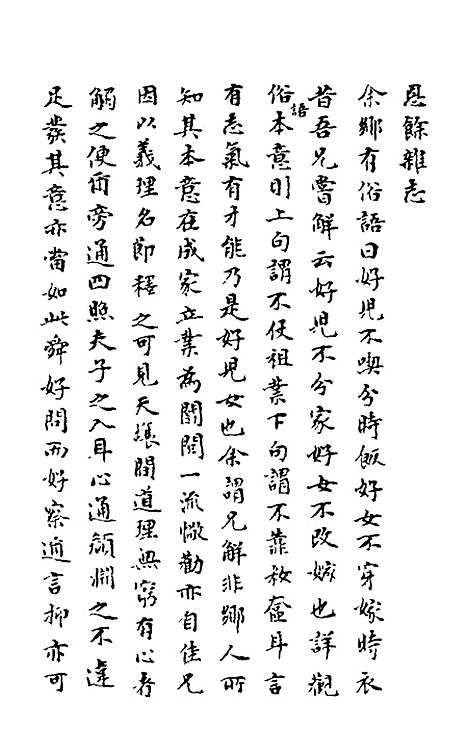 恩餘雜志
余鄉有俗語曰好兒不喫分時飯好女不穿嫁時衣
昔吾兄嘗解云好兒不分家好女不改嫁也詳觀
俗語本意則上句謂不仗祖業下句謂不靠妝奩耳言
有志氣有才能乃是好兒女也余謂兄解非鄉人所
知其本意在成家立業為閭閻一流懲勸亦自佳兄
因以義理名節釋之可見天壤間道理無窮有心者
觸之便爾旁通四照夫子之入耳心通顏淵之不違
足發其意亦當如此舜好問而好察邇言抑亦可